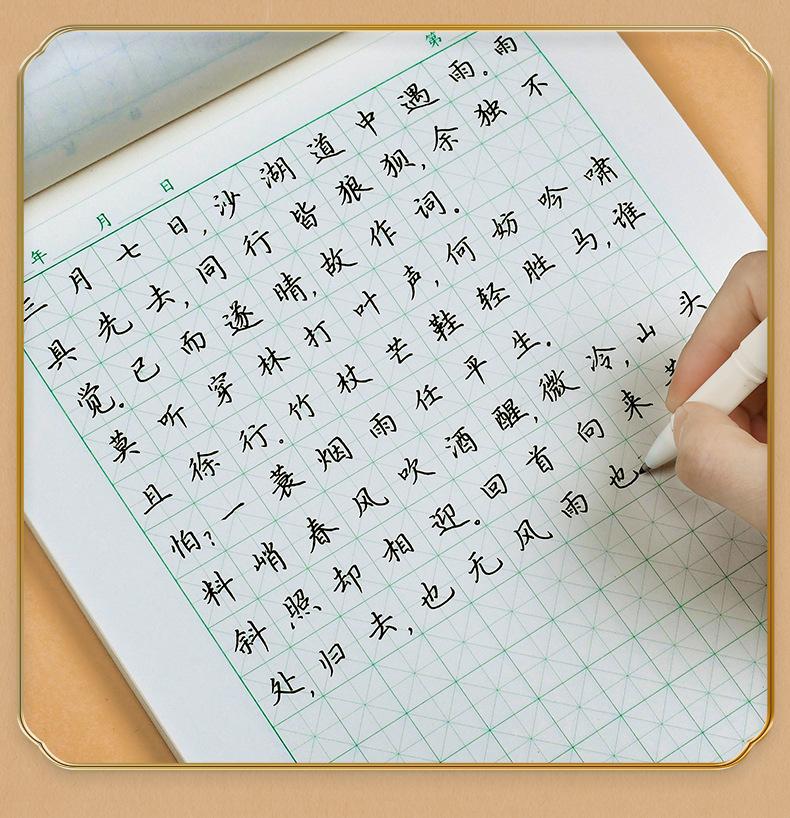 第
年 月 日
三月七日,沙湖道中遇雨。雨
具先去,同行皆狼狈,余独不
觉。已而遂晴,故作词。
莫听穿林打叶声,何妨吟啸
且徐行。竹杖芒鞋轻胜马,谁
怕?一蓑烟雨任平生。
料峭春风吹酒醒,微冷,山头
斜照却相迎。回首向来
处,归去,也无风雨也